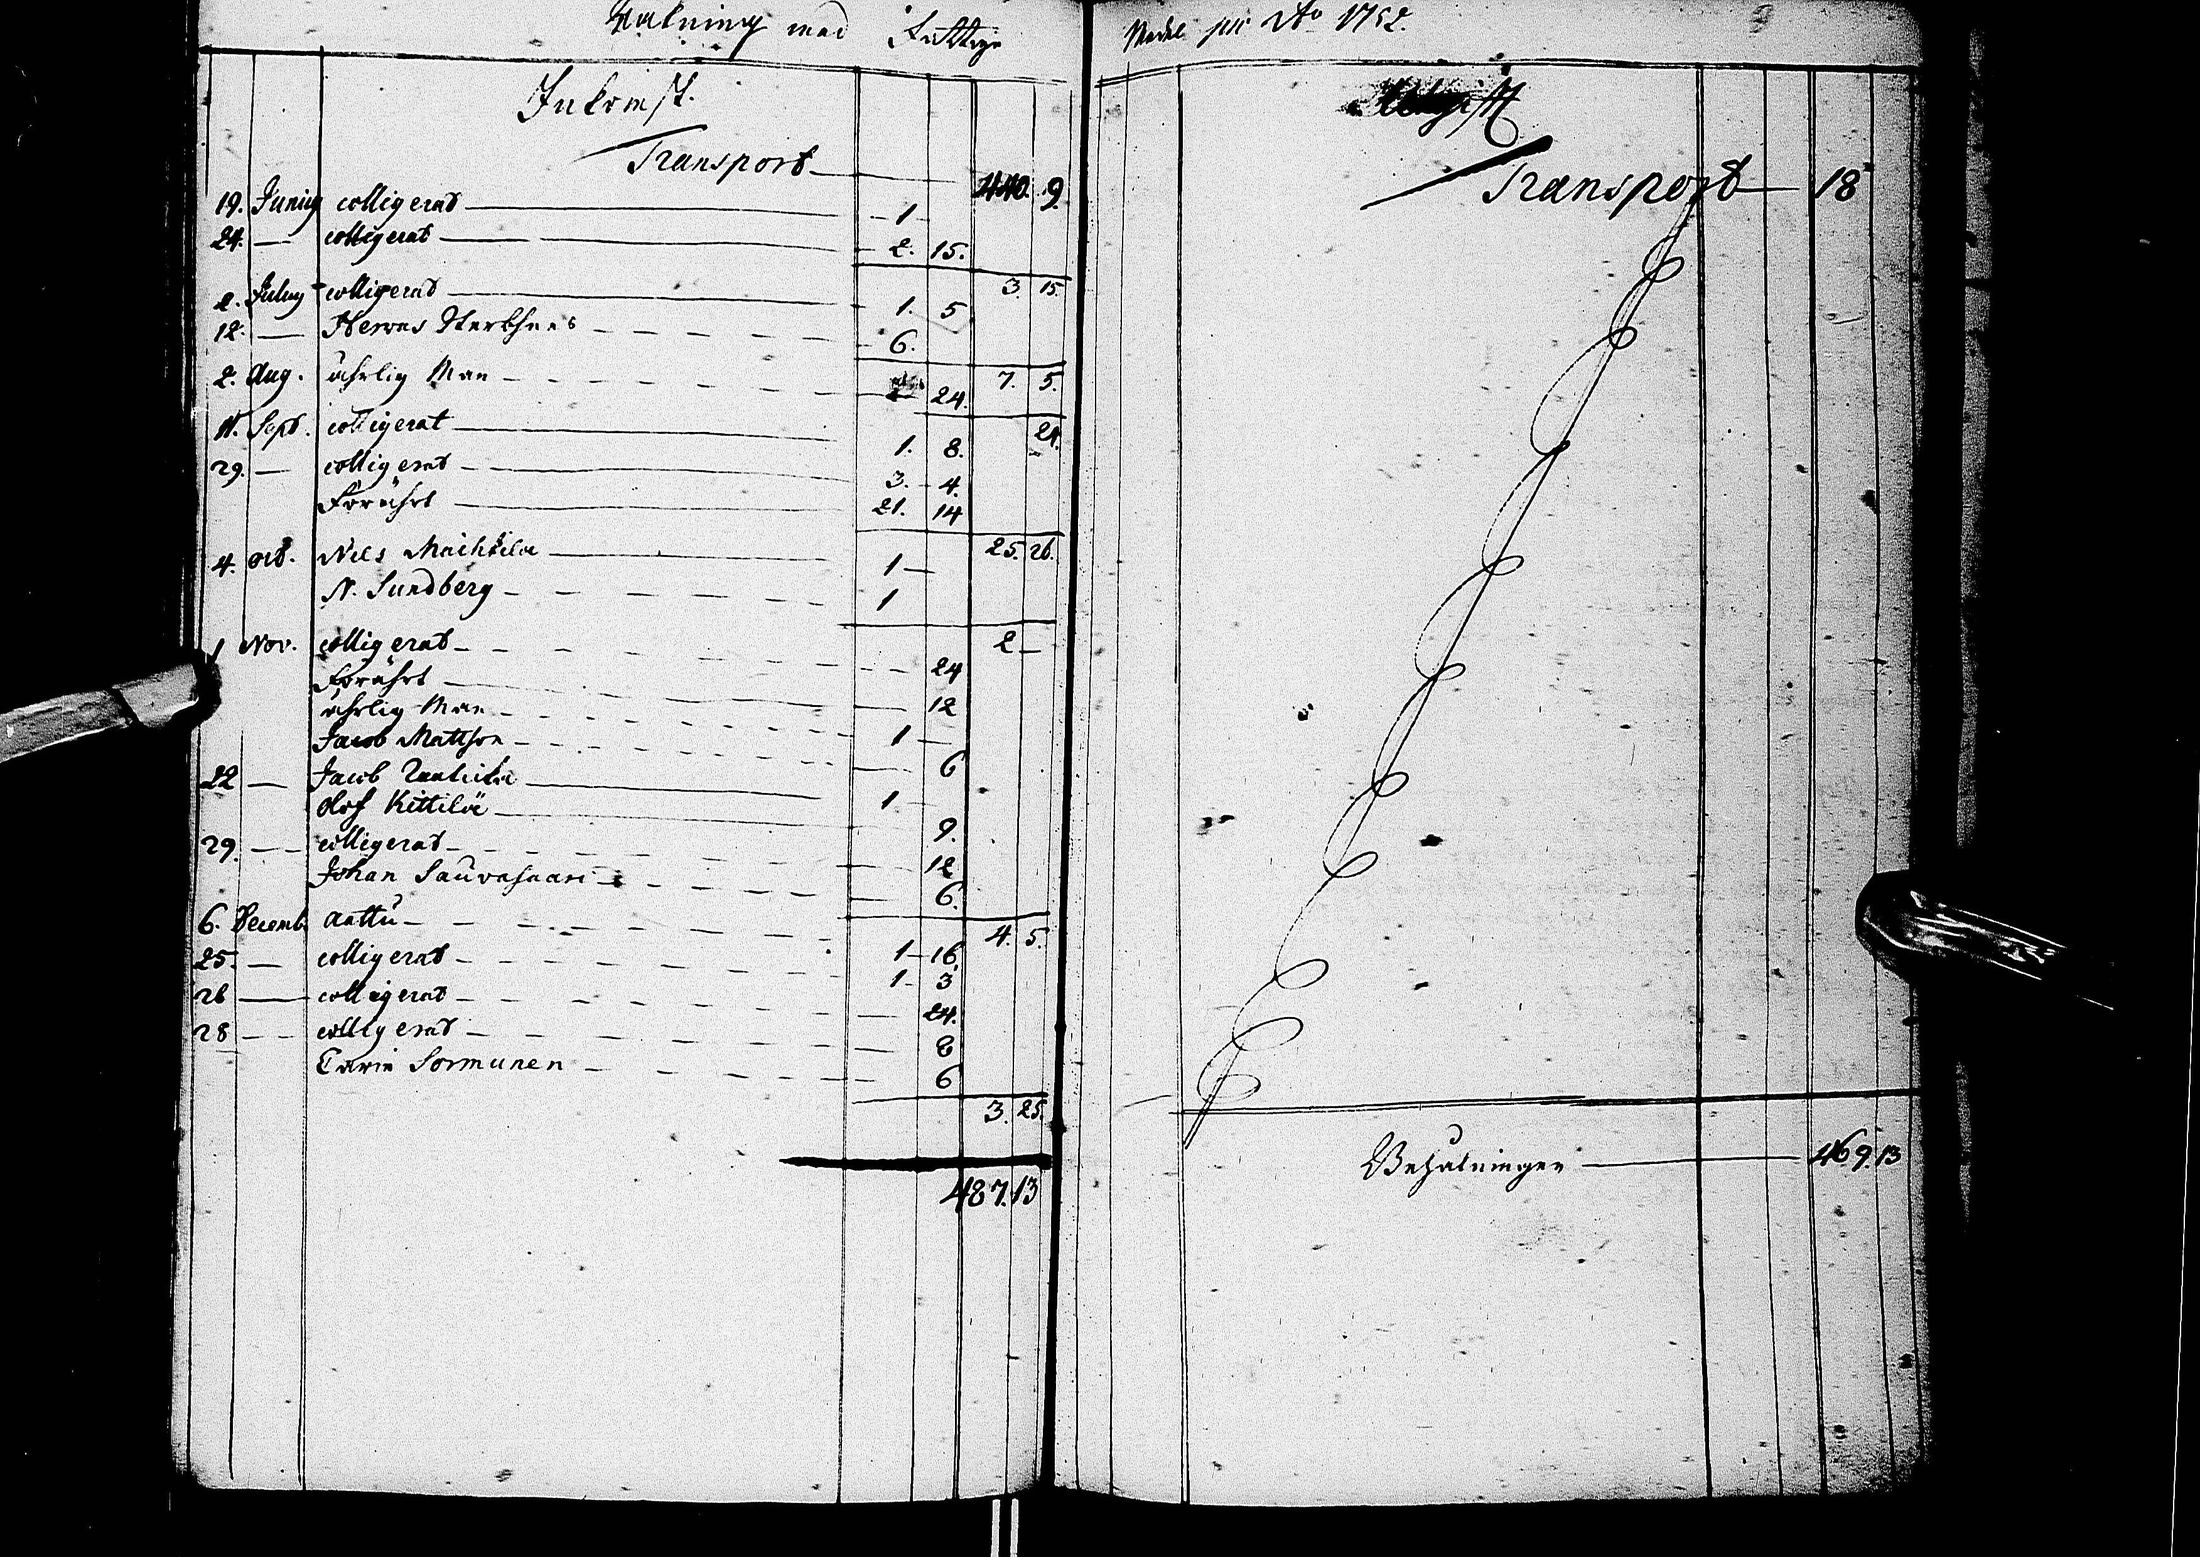 Räkning med Fattige
Inkomst.
Transport 440. 9.
19. Junius colligerat 1
24. — colligerat 2. 15.
3. 15.
2. July colligerat 1. 5
12. — 6.
7. 5.
2. Aug. ährlig Man 24.
24.
11. Sept. colligerat 1. 8.
29. — colligerat 3. 4.
Förährt 21. 14
25. 26.
4. oct. Nils Maihkila 1 —
N. Sundberg 1
2 —
1 Nov. colligerat 24
Förährt 12
ährlig Man 1 —
Jacob Mattson 6
22 — Jacob 1
Olof Kittilä 9.
29. — colligerat 12
Johan Sauvasaari 6.
4. 5.
6. Decemb. Anttu 1 — 16
25. — colligerat 1 — 3
26 — colligerat 24.
28 — colligerat 8
Carin Sormunen 6
3. 25.
487. 13
Medel pro Ao 1752.
Utgift
Transport 18
Behålningen 469. 13